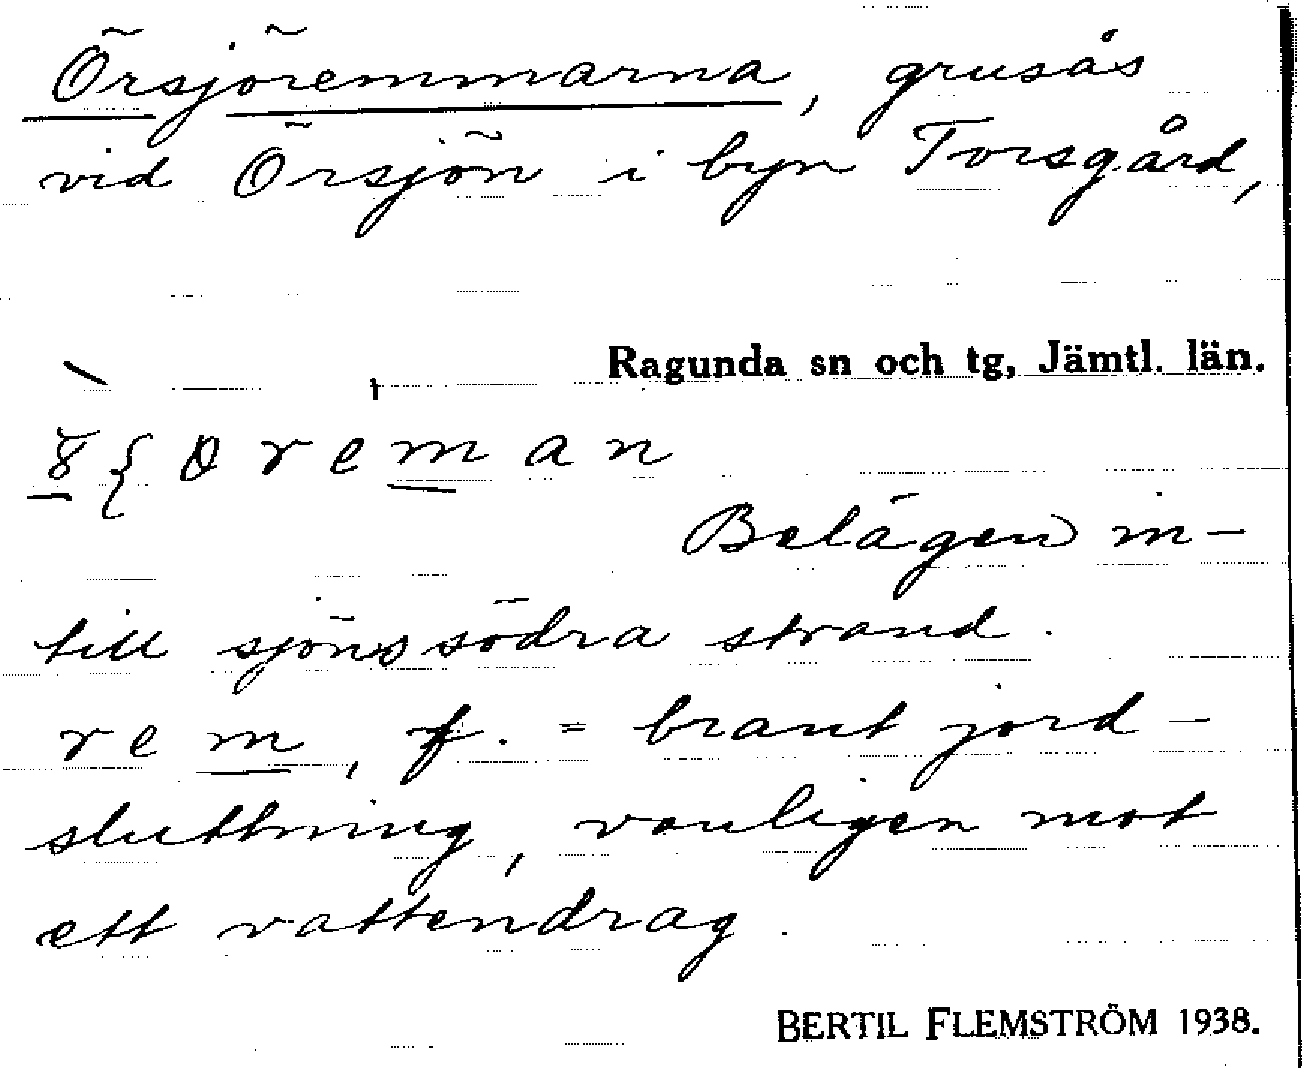 Örsjöremmarna, grusås
vid Örsjön i byn Torsgård,
Ragunda sn och tg, Jämtl. län.
Belägen in-
till sjöns södra strand.
rem, f. = brant jord-
sluttning, vanligen mot
ett vattendrag.
BERTIL FLEMSTRÖM 1938.